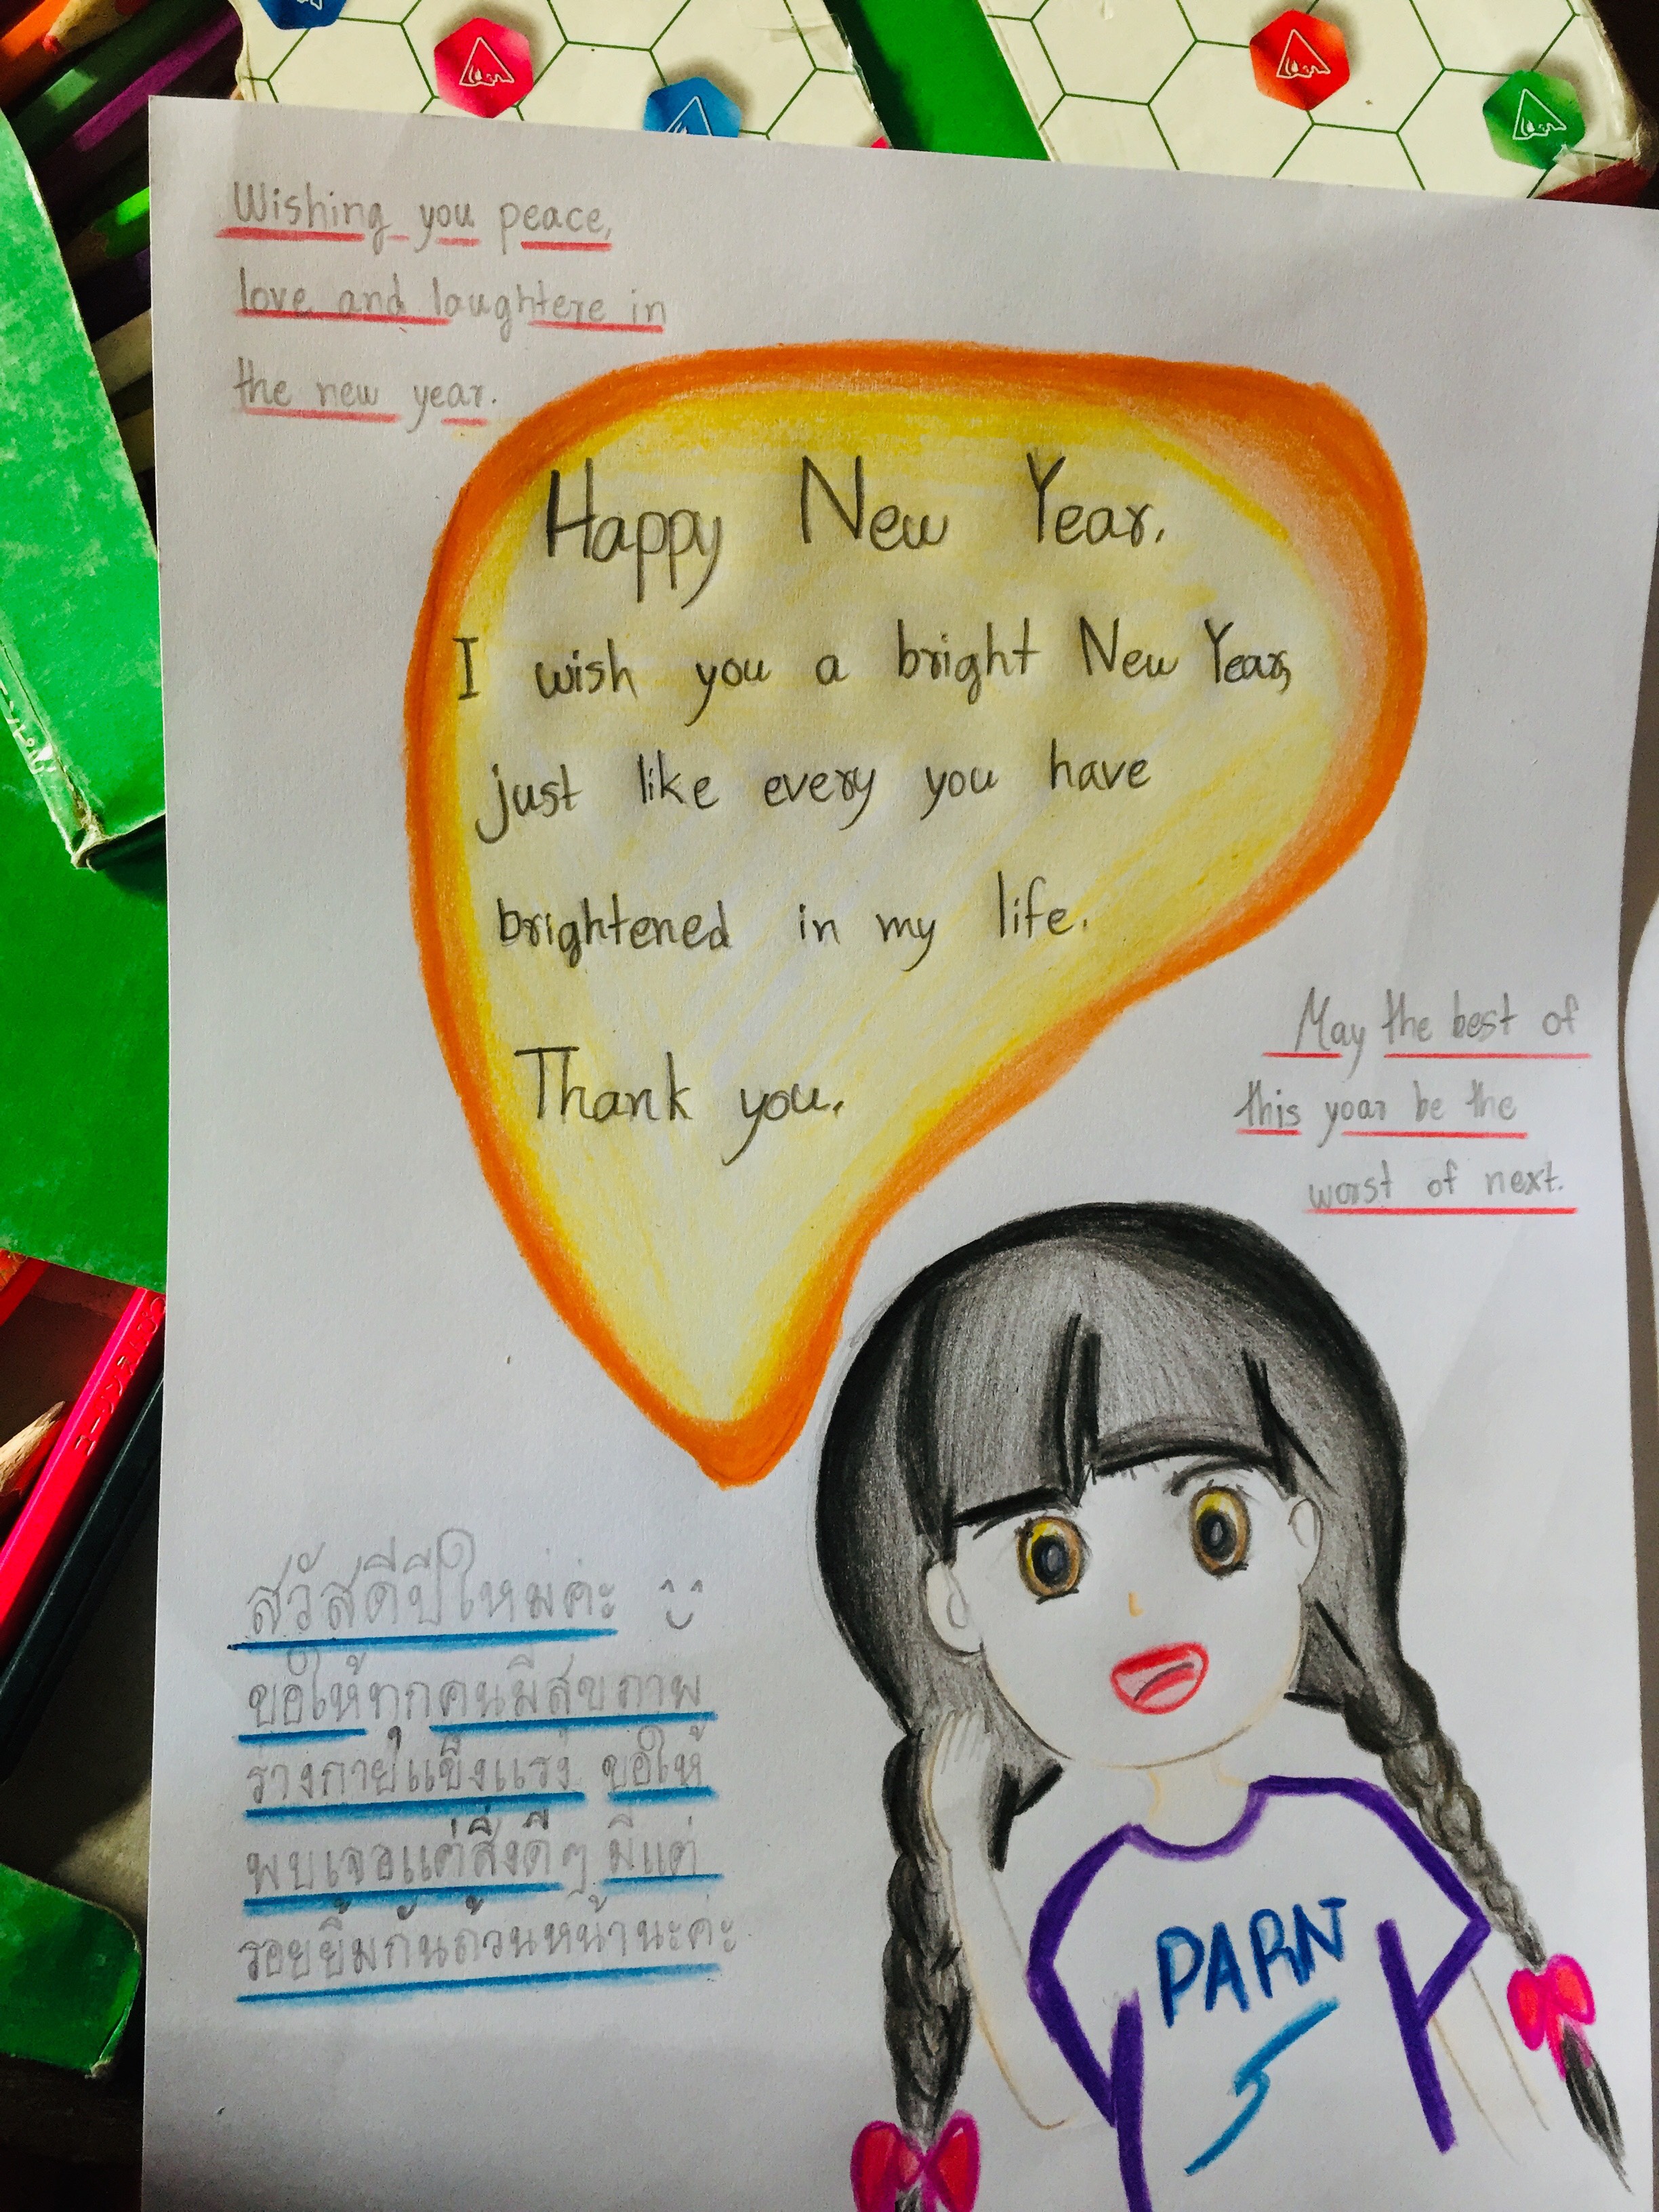 Wishing you peace,
love and laughtere in
the new year.
Happy New Year.
I wish you a bright New Year,
just like every you have
brightened in my life.
Thank you.
May the best of
this year be the
worst of next.
สวัสดีปีใหม่ค่ะ
ขอให้ทุกคนมีสุขภาพ
ร่างกายแข็งแรง ขอให้
พบเจอแต่สิ่งดีๆ มีแต่
รอยยิ้มกันถ้วนหน้านะค่ะ
PARN
5